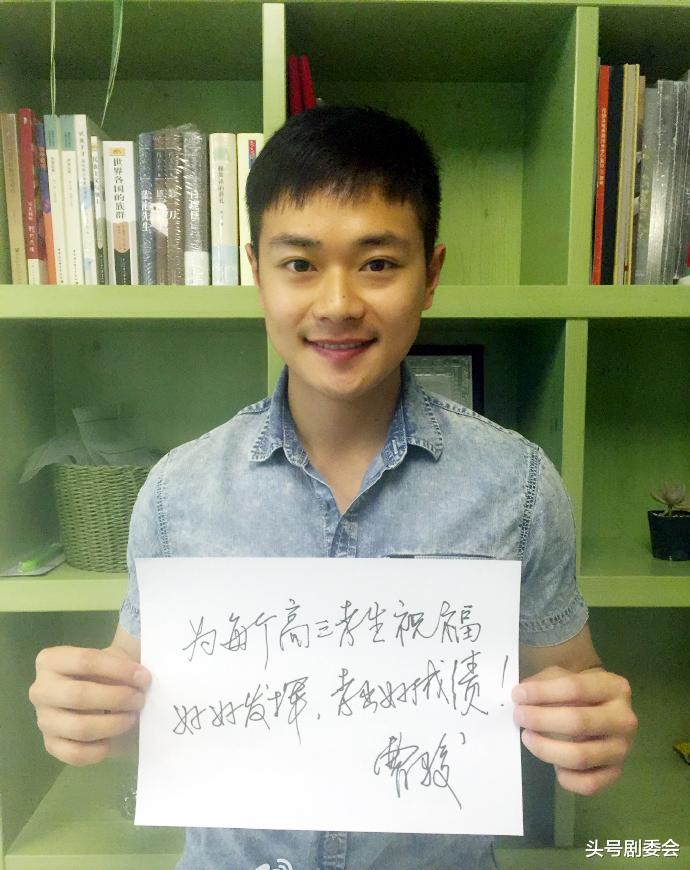 世界各国的族群
先生
为每个高三考生祝福
好好发挥，考出好成绩！
曹骏
头号剧委会